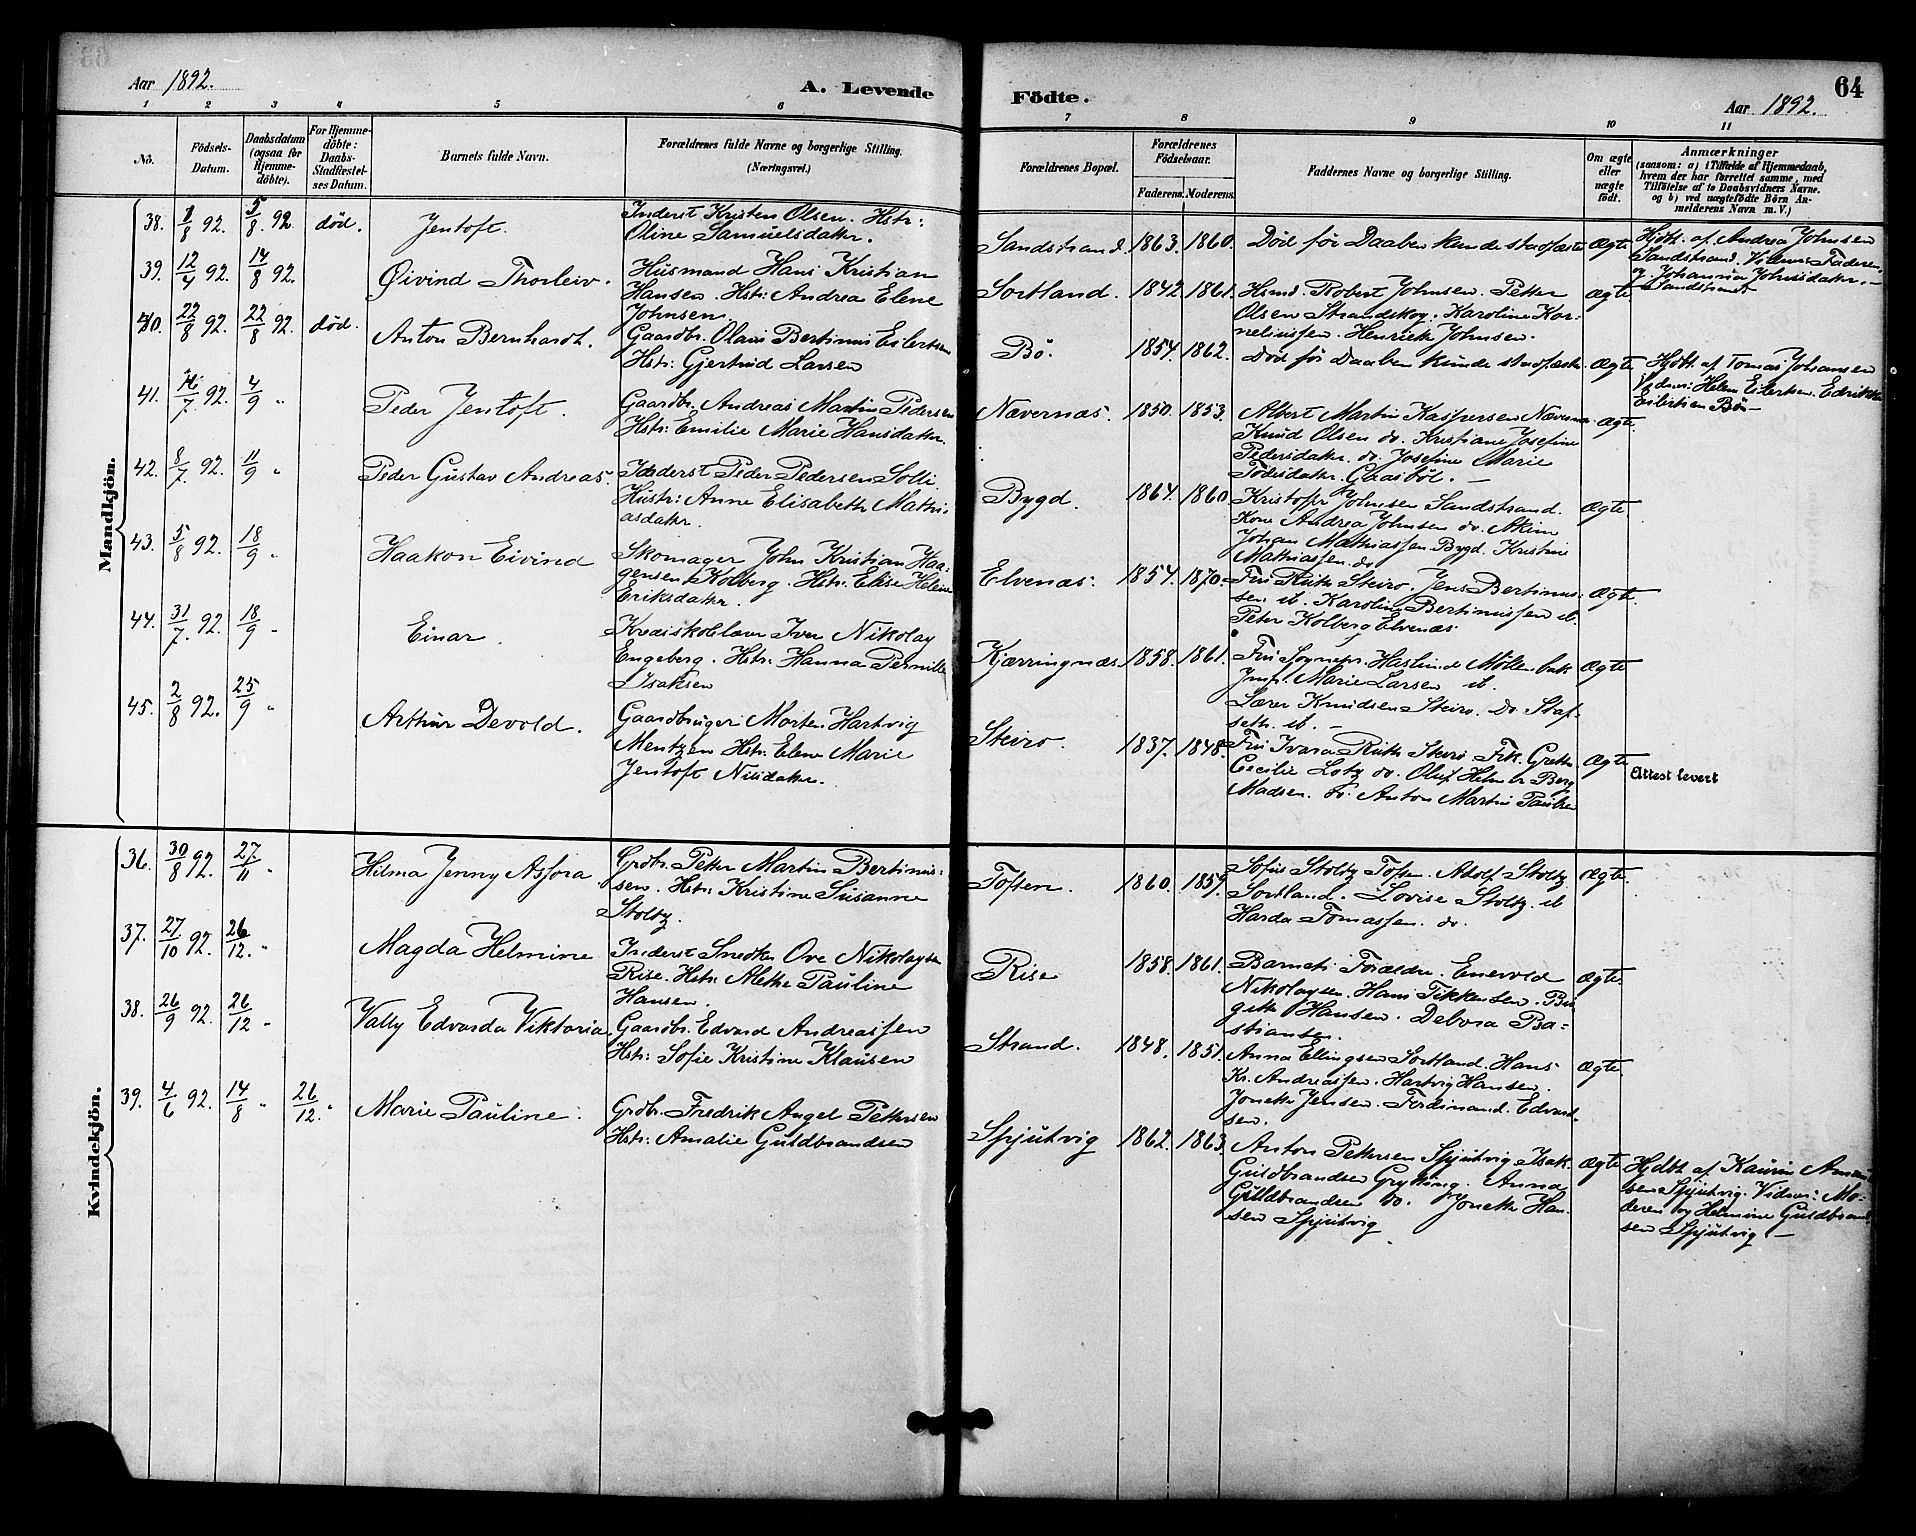 Aar 1892.
A. Levende
Födte.
64
Aar 1892.
1 2 3 4 5 6 7 8 9 10 11
No.
Födsels-
Datum.
Daabsdatum
(ogsaa for
Hjemme-
döbte).
For Hjemme-
döbte:
Daabs-
Stadfæstel-
ses Datum.
Barnets fulde Navn.
Forældrenes fulde Navne og borgerlige Stilling.
(Næringsvei.)
Forældrenes Bopæl.
Forældrenes
Födselsaar.
Faderens. Moderens.
Faddernes Navne og borgerlige Stilling.
Om ægte
eller
uægte
födt.
Anmærkninger
(saasom: a) i Tilfælde af Hjemmedaab,
hvem der har forrettet samme, med
Tilföielse af to Daabsvidners Navne.
og b) ved uægtefödte Börn An-
melderens Navn m. V.)
Mandkjön.
38. 1/8 92. 5/8 92. död. Jentoft.
Inderst Kristen Olsen. Hstr:
Oline Samuelsdatter.
Sandstrand. 1863. 1860.
Död för Daaben kunde stadfæstes
Ægte
Hjdbt. af Andrea Johnsen
Sandstrand. Vidner: Faderen
og Johanna Johnsdatter.
Sandstrand
39. 12/4 92. 14/8 92. Øivind Thorleiv.
Husmand Hans Kristian
Hansen. Hstr: Andrea Elene
Johnsen.
Sortland. 1842. 1861.
Hsmd. Robert Johnsen. Petter
Olsen Strandskog. Karoline Kor-
neliussen. Henrik Johnsen.
Ægte
40. 22/8 92. 22/8 92. död. Anton Bernhardt.
Gaardbr. Olaus Bertinus Eilertsen
Hstr: Gjertrud Larsen
Bö. 1854. 1862.
Död för Daaben kunde stadfæstes
Ægte
Hjdbt. af Tomas Johansen
Vidner: Helene Eilertsen.
Eilertsen Bö
41. 92. 4/9 " Peder Jentoft.
Gaardbr. Andreas Martin Pedersen
Hstr: Emilie Marie Hansdatter.
Nævernæs. 1850. 1853.
Albert Martin Kaspersen Nævernæs
Knud Olsen do. Kristiane Josefine
Pedersdatter. do. Josefine Marie
Gaasböl.
Ægte.
42. 8/7 92. 11/9 " Peder Gustav Andreas.
Inderst Peder Pedersen Solli.
Hustr: Anne Elisabeth Mathi-
asdatter.
Bygd. 1864. 1860
Kristofer Johnsen Sandstrand.
Kone Andrea Johnsen do.
Johan Mathiassen Bygd. Kristine
Mathiassen do
Ægte.
43. 5/8 92. 18/9 " Haakon Eivind
Skomager John Kristian Haa-
gensen Kolberg. Hstr: Elise Helene
Eriksdatter.
Elvenæs. 1854. 1870.
Fru Ruth Steiro. Jens Bertinus-
sen. ib. Karoline Bertinussen ib.
Peter Kolberg Elvenæs
Ægte.
44. 31/7 92. 18/9 " Einar.
Kredsskolelærer Iver Nikolay
Engeberg. Hstr: Hanna Pernille
Isaksen
Kjærringnæs. 1858. 1861.
Fru
Marie Larsen ib.
Lærer Knudsen Steiro. do Staf-
seth. ib.
Ægte
45. 2/8 92. 25/9 " Arthur Devold.
Gaardbruger Morten Hartvig
Mentzen Hstr: Elen Marie
Jentoft Nilsdatter.
Steiro. 1837. 1848.
Fru Ivara Ruth Steiro Frk. Grethe
Cecilie Lotz do. Oluf Helmer Berg
Madsen. do. Anton Martin Paulsen
Ægte
Attest levert
Kvindekjön.
36. 30/8 92. 27/11 " Hilma Jenny Asfora.
Grdbr. Petter Martin Bertinus-
sen. Hstr: Kristine Susanne
Stoltz.
Toften. 1860. 1859.
Sofus Stoltz Toften. Adolf Stoltz
Sortland. Lovise Stoltz. ib
Harda Tomassen. do.
Ægte.
37. 27/10 92. 26/12. " Magda Helmine
Inderst Snedker Ove Nikolaysen
Rise. Hstr: Mette Pauline
Hansen.
Rise 1858. 1861.
Barnets Forældre. Enevold
Nikolaysen. Hans Fikkensen. Bir-
gitte Hansen. Debora Ba-
stiansen.
Ægte
38. 26/9 92. 26/12 " Vally Edvarda Viktoria.
Gaardbr. Edvard Andreassen
Hstr: Sofie Kristine Klausen
Strand. 1848. 1851.
Anna Ellingsen Sortland. Hans
Kr. Andreassen. Hartvig Hansen.
Jonette Jensen. Ferdinand. Edvard-
sen.
Ægte.
39. 4/6 92. 14/8 " 26/12. " Marie Pauline.
Grdbr. Fredrik Angel Pettersen
Hstr: Amalie Guldbrandsen
Spjutvig 1862. 1863.
Anton Pettersen Spjutvig Isak
Guldbrandsen Grytting. Anna
Guldbrandsen do. Jonette Han-
sen Spjutvig
Ægte
Hjdbt. af Kaurin
sen Spjutvig. Vidner: Mo-
deren og Helmine Guldbrand-
sen Spjutvig